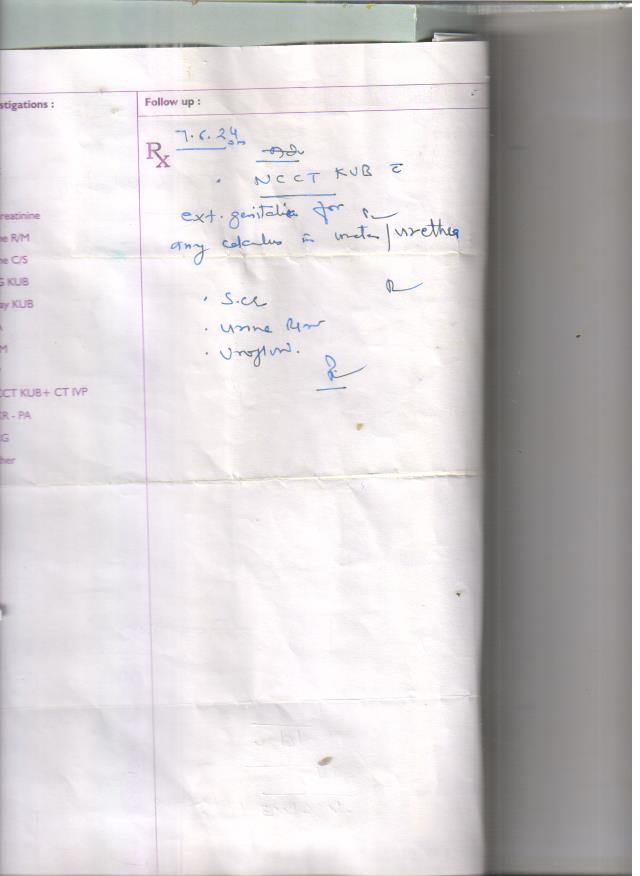 stigations :
Follow up :
Rx 7.6.24
NCCT KUB c̅
ext. genitalia for
any calculus in ureter/urethra
reatinine
e R/M
e C/S
G KUB
ay KUB
M
CCT KUB+ CT IVP
R - PA
G
her
• S.Cr
• Urine R/M
• Uroflow.